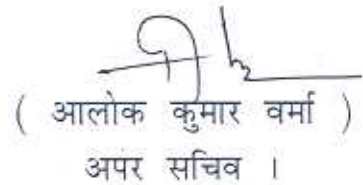 ( आलोक कुमार वर्मा )
अपर सचिव ।